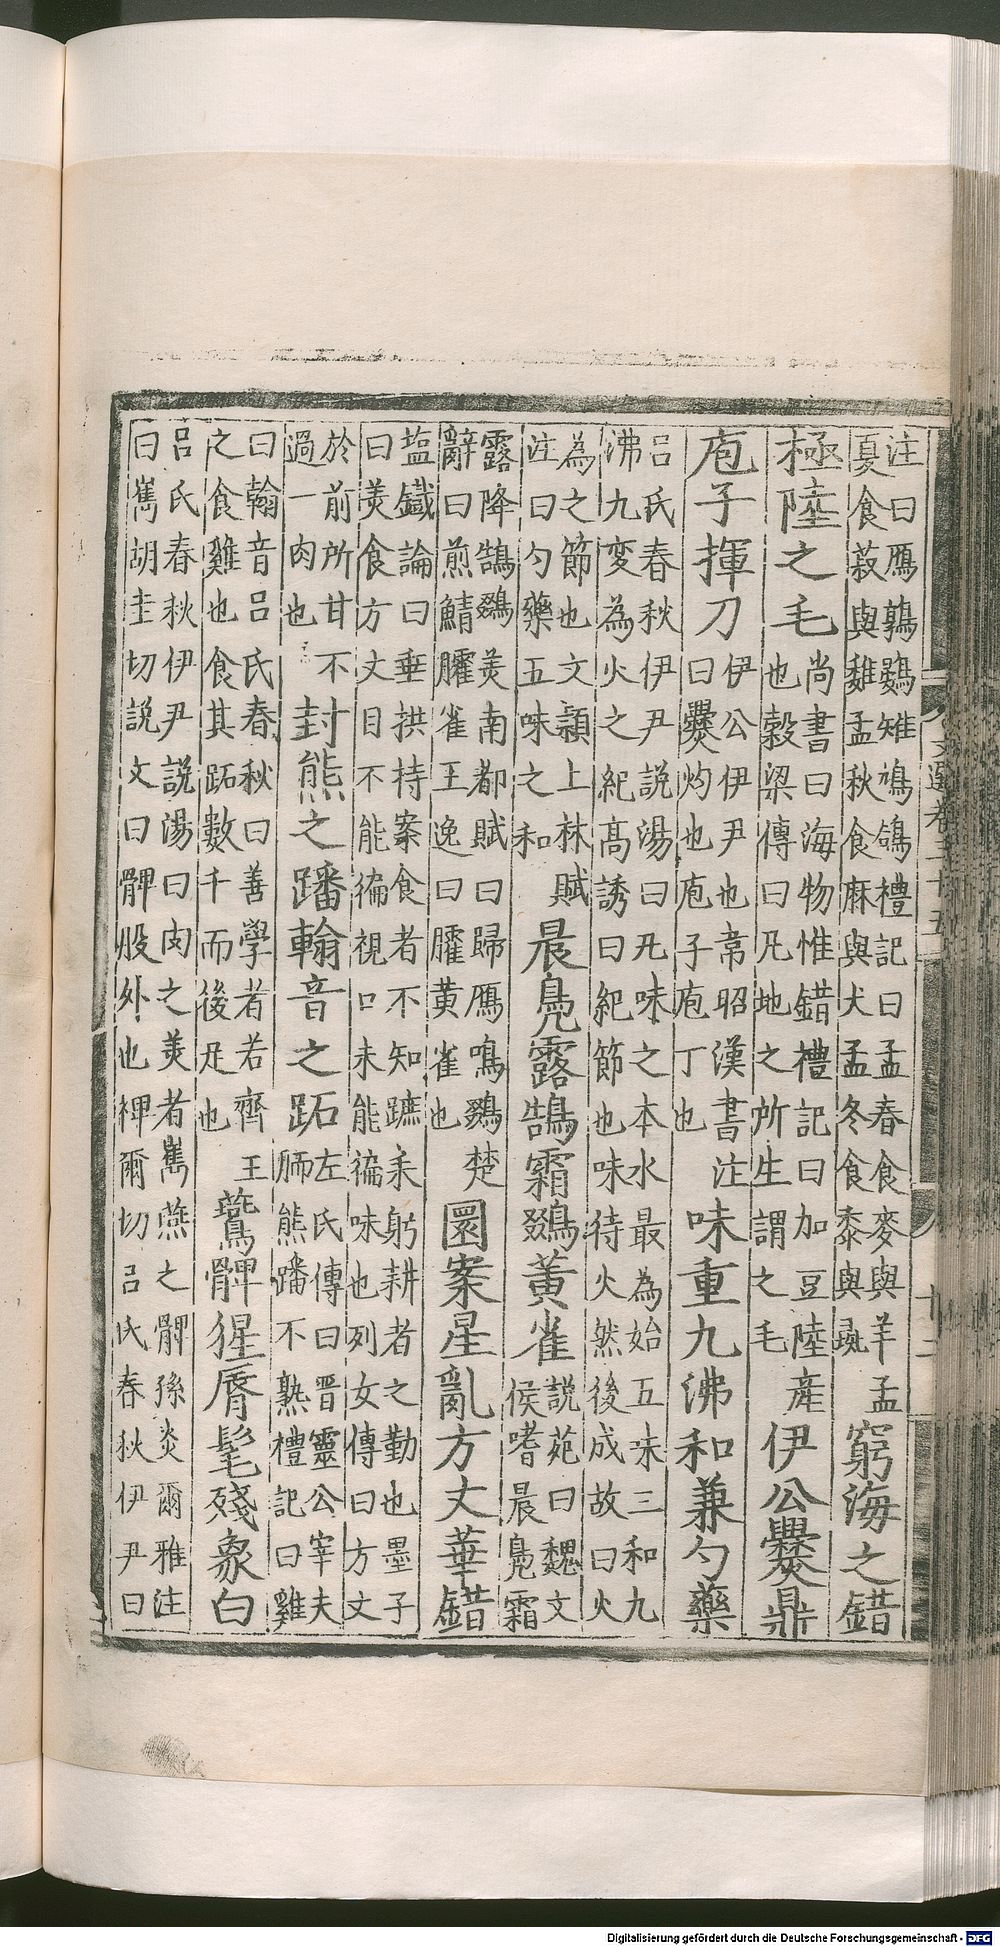 注曰鴈鶉鷃雉鳩鴿禮記曰孟春食麥與羊孟
夏食菽與雞孟秋食麻與犬孟冬食黍與彘
窮海之錯
極陸之毛
尚書曰海物惟錯禮記曰加豆陸産
也穀梁傳曰凡地之所生謂之毛
伊公爨鼎
庖子揮刀
伊公伊尹也韋昭漢書注
曰爨灼也庖子庖丁也
味重九沸和兼勺藥
呂氏春秋伊尹說湯曰凡味之本水最為始五味三和九
沸九变為火之紀高誘曰紀節也味待火然後成故曰火
為之節也文穎上林賦
注曰勺藥五味之和
晨鳧露鵠霜鵽黃雀
說苑曰魏文
侯嗜晨鳧霜
露降鵠鵽羙南都賦曰歸鴈鳴鵽楚
辭曰煎鯖臛雀王逸曰臛黄雀也
圜案星亂方丈華錯
塩鐵論曰垂拱持案食者不知蹠耒躬耕者之勤也墨子
曰羙食方丈目不能徧視口未能徧味也列女傳曰方丈
於前所甘不
過一肉也
封熊之蹯翰音之跖
左氏傳曰晋靈公宰夫
胹熊蹯不熟禮記曰雞
曰翰音吕氏春秋曰善學者若齊王
之食雞也食其跖數千而後足也
鷰髀猩脣髦殘象白
呂氏春秋伊尹說湯曰肉之羙者嶲燕之髀孫炎爾雅注
曰嶲胡圭切說文曰髀股外也裨爾切呂氏春秋伊尹曰
文選卷三十五
廿二
Digitalisierung gefördert durch die Deutsche Forschungsgemeinschaft - DFG